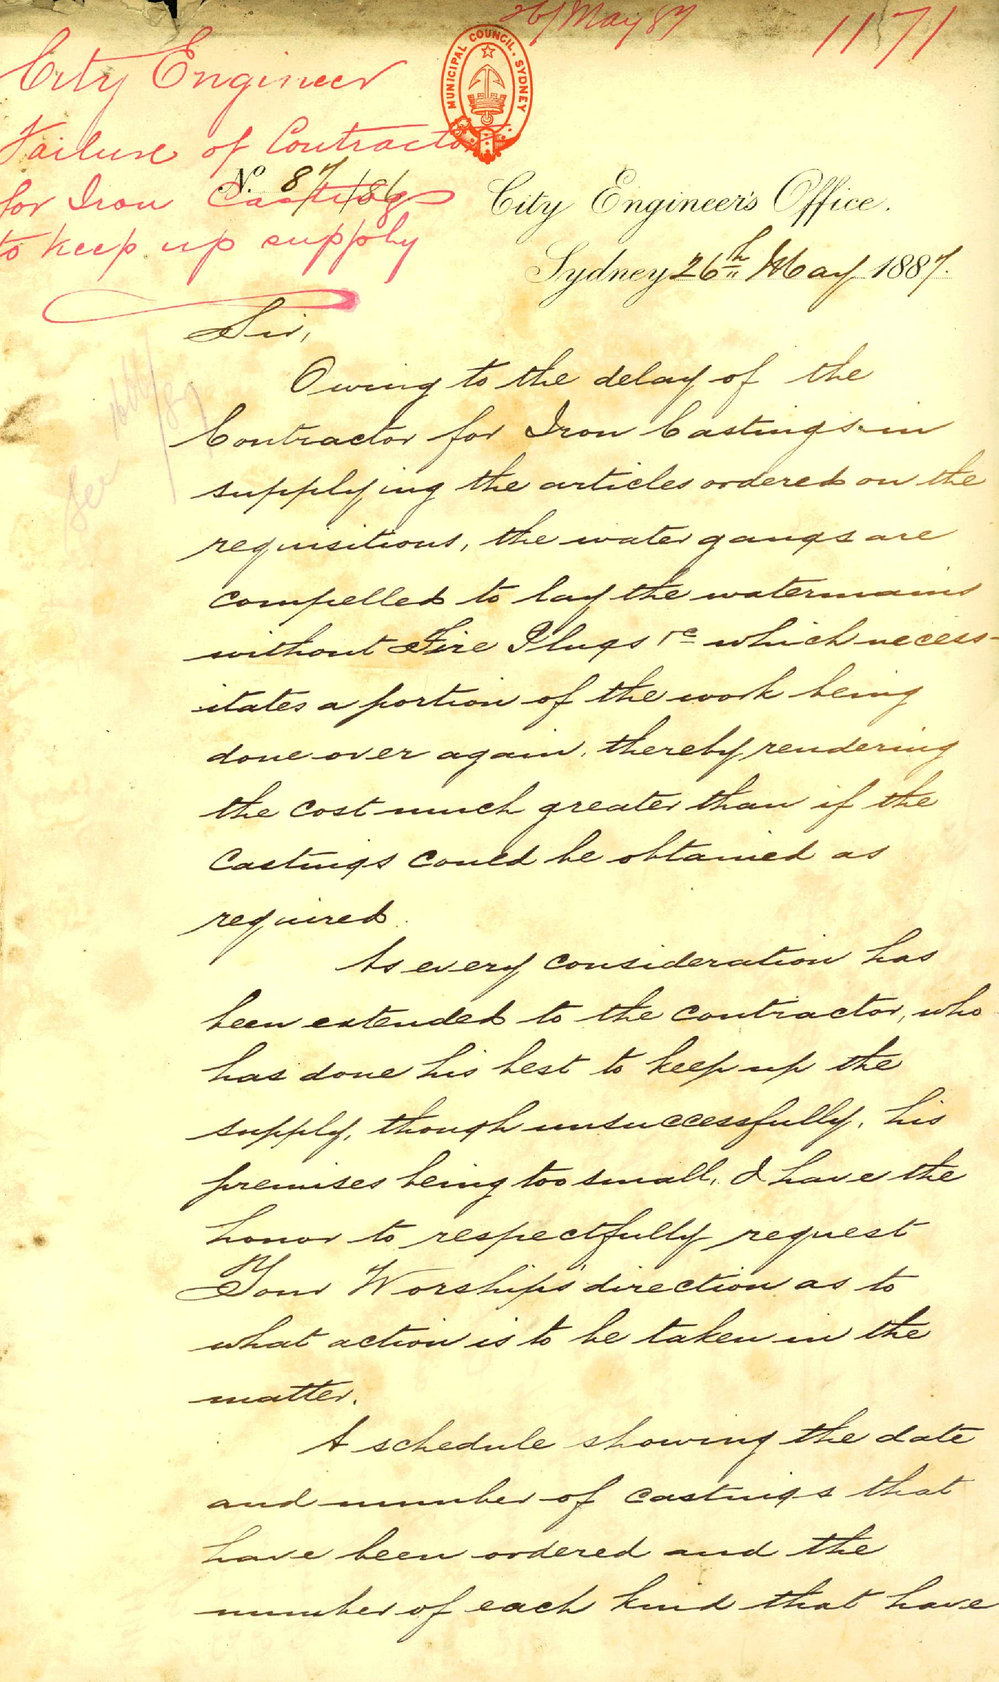 26/May 87
1171
City Engineer
Failure of Contractor
for Iron Castings
to keep up supply
MUNICIPAL COUNCIL. SYDNEY
No. 87/86
City Engineer's Office.
Sydney 26th May 1887.
Sir,
Owing to the delay of the
Contractor for Iron Castings in
supplying the articles ordered on the
requisitions, the water gangs are
compelled to lay the watermains
without Fire Plugs &c which necess-
itates a portion of the work being
done over again, thereby rendering
the cost much greater than if the
Castings could be obtained as
required.
As every consideration has
been extended to the contractor, who
has done his best to keep up the
supply, though unsuccessfully, his
premises being too small, I have the
honor to respectfully request
Your Worship's direction as to
what action is to be taken in the
matter.
A schedule showing the date
and number of castings that
have been ordered and the
number of each kind that have